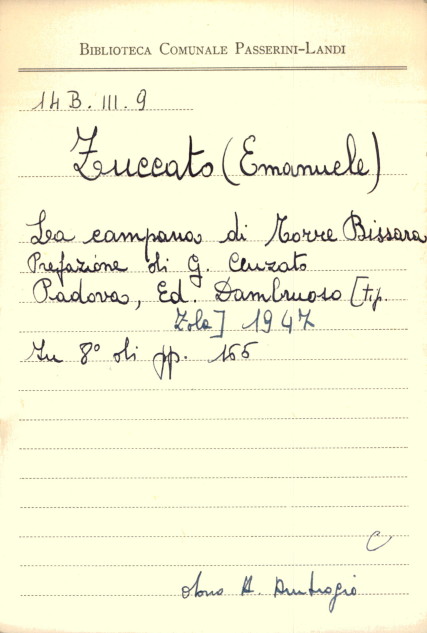 BIBLIOTECA COMUNALE PASSERINI-LANDI
14 B. III. 9
Zuccato (Emanuele)
La campana di Torre Bissara
Prefazione di G. Cenzato
Padova, Ed. Dambruoso [tip.
Zola] 1947
In 8º di pp. 166
C
dono A. Ambrogio